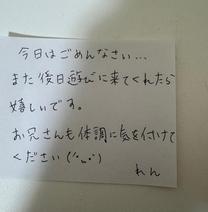 今日はごめんなさい...
また後日遊びに来てくれたら
嬉しいです。
お兄さんも体調に気を付けて
ください(´･_･`)
れん